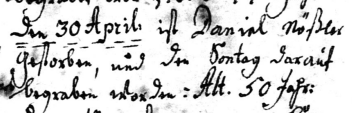 den 30 April: ist Daniel Nößler
gestorben, und den Sontag darauf
begraben worden: Alt. 50 Jahr: